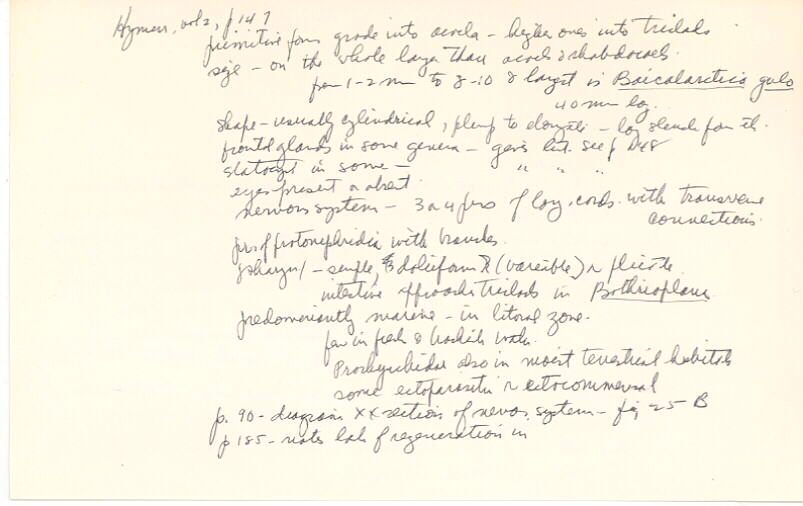 Hyman, vol 2, p 147
primitive forms grade into acoela - higher ones into triclads
size - on the whole larger than acoels & rhabdocoels.
from 1-2 mm to 8-10 & largest is Baicalarctia gulo
40 mm long.
shape - usually cylindrical, plump to elongate - long slender forms
frontal glands in some genera - gives lit. see p 148
statocyst in some - " " "
eyes present or absent
nervous system - 3 or 4 prs of long. cords with transverse
connections.
prs of protonephridia with branches.
pharynx - simple, doliiform (variable) or plicate
intestine approaches triclads in Bothrioplana
predominantly marine - in litoral zone.
few in fresh & brackish water.
Prorhynchidae also in moist terrestrial habitats
some ectoparasitic or ectocommensal
p. 90 - diagram X section of nervous system - fig 25 B
p 185 - notes lack of regeneration in